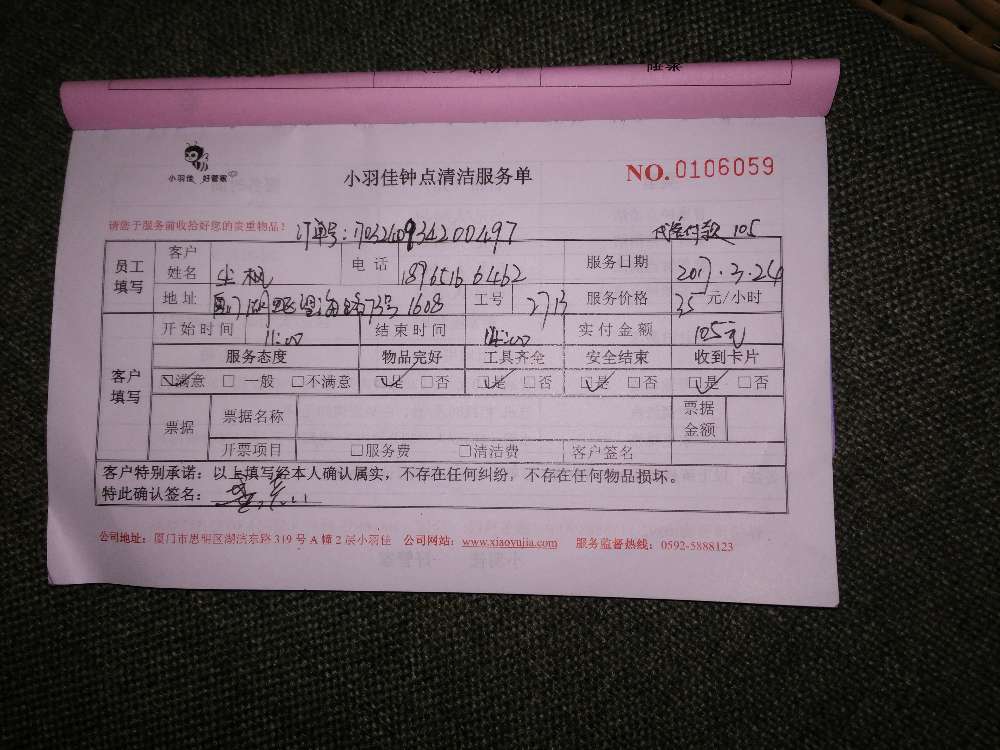 小羽佳 好管家
小羽佳钟点清洁服务单
NO. 0106059
请您于服务前收拾好您的贵重物品！
代客付款 105
员工填写 客户姓名 电话 服务日期 2017.3.24
地址 1608 工号 2713 服务价格 35 元/小时
客户填写 开始时间 11:00 结束时间 14:00 实付金额 105元
服务态度 物品完好 工具齐全 安全结束 收到卡片
☑满意 □一般 □不满意 ☑是 □否 ☑是 □否 ☑是 □否 ☑是 □否
票据 票据名称 票据金额
开票项目 □服务费 □清洁费 客户签名
客户特别承诺：以上填写经本人确认属实，不存在任何纠纷，不存在任何物品损坏。
特此确认签名：
公司地址：厦门市思明区湖滨东路319号A幢2层小羽佳 公司网站：www.xiaoyujia.com 服务监督热线：0592-5888123